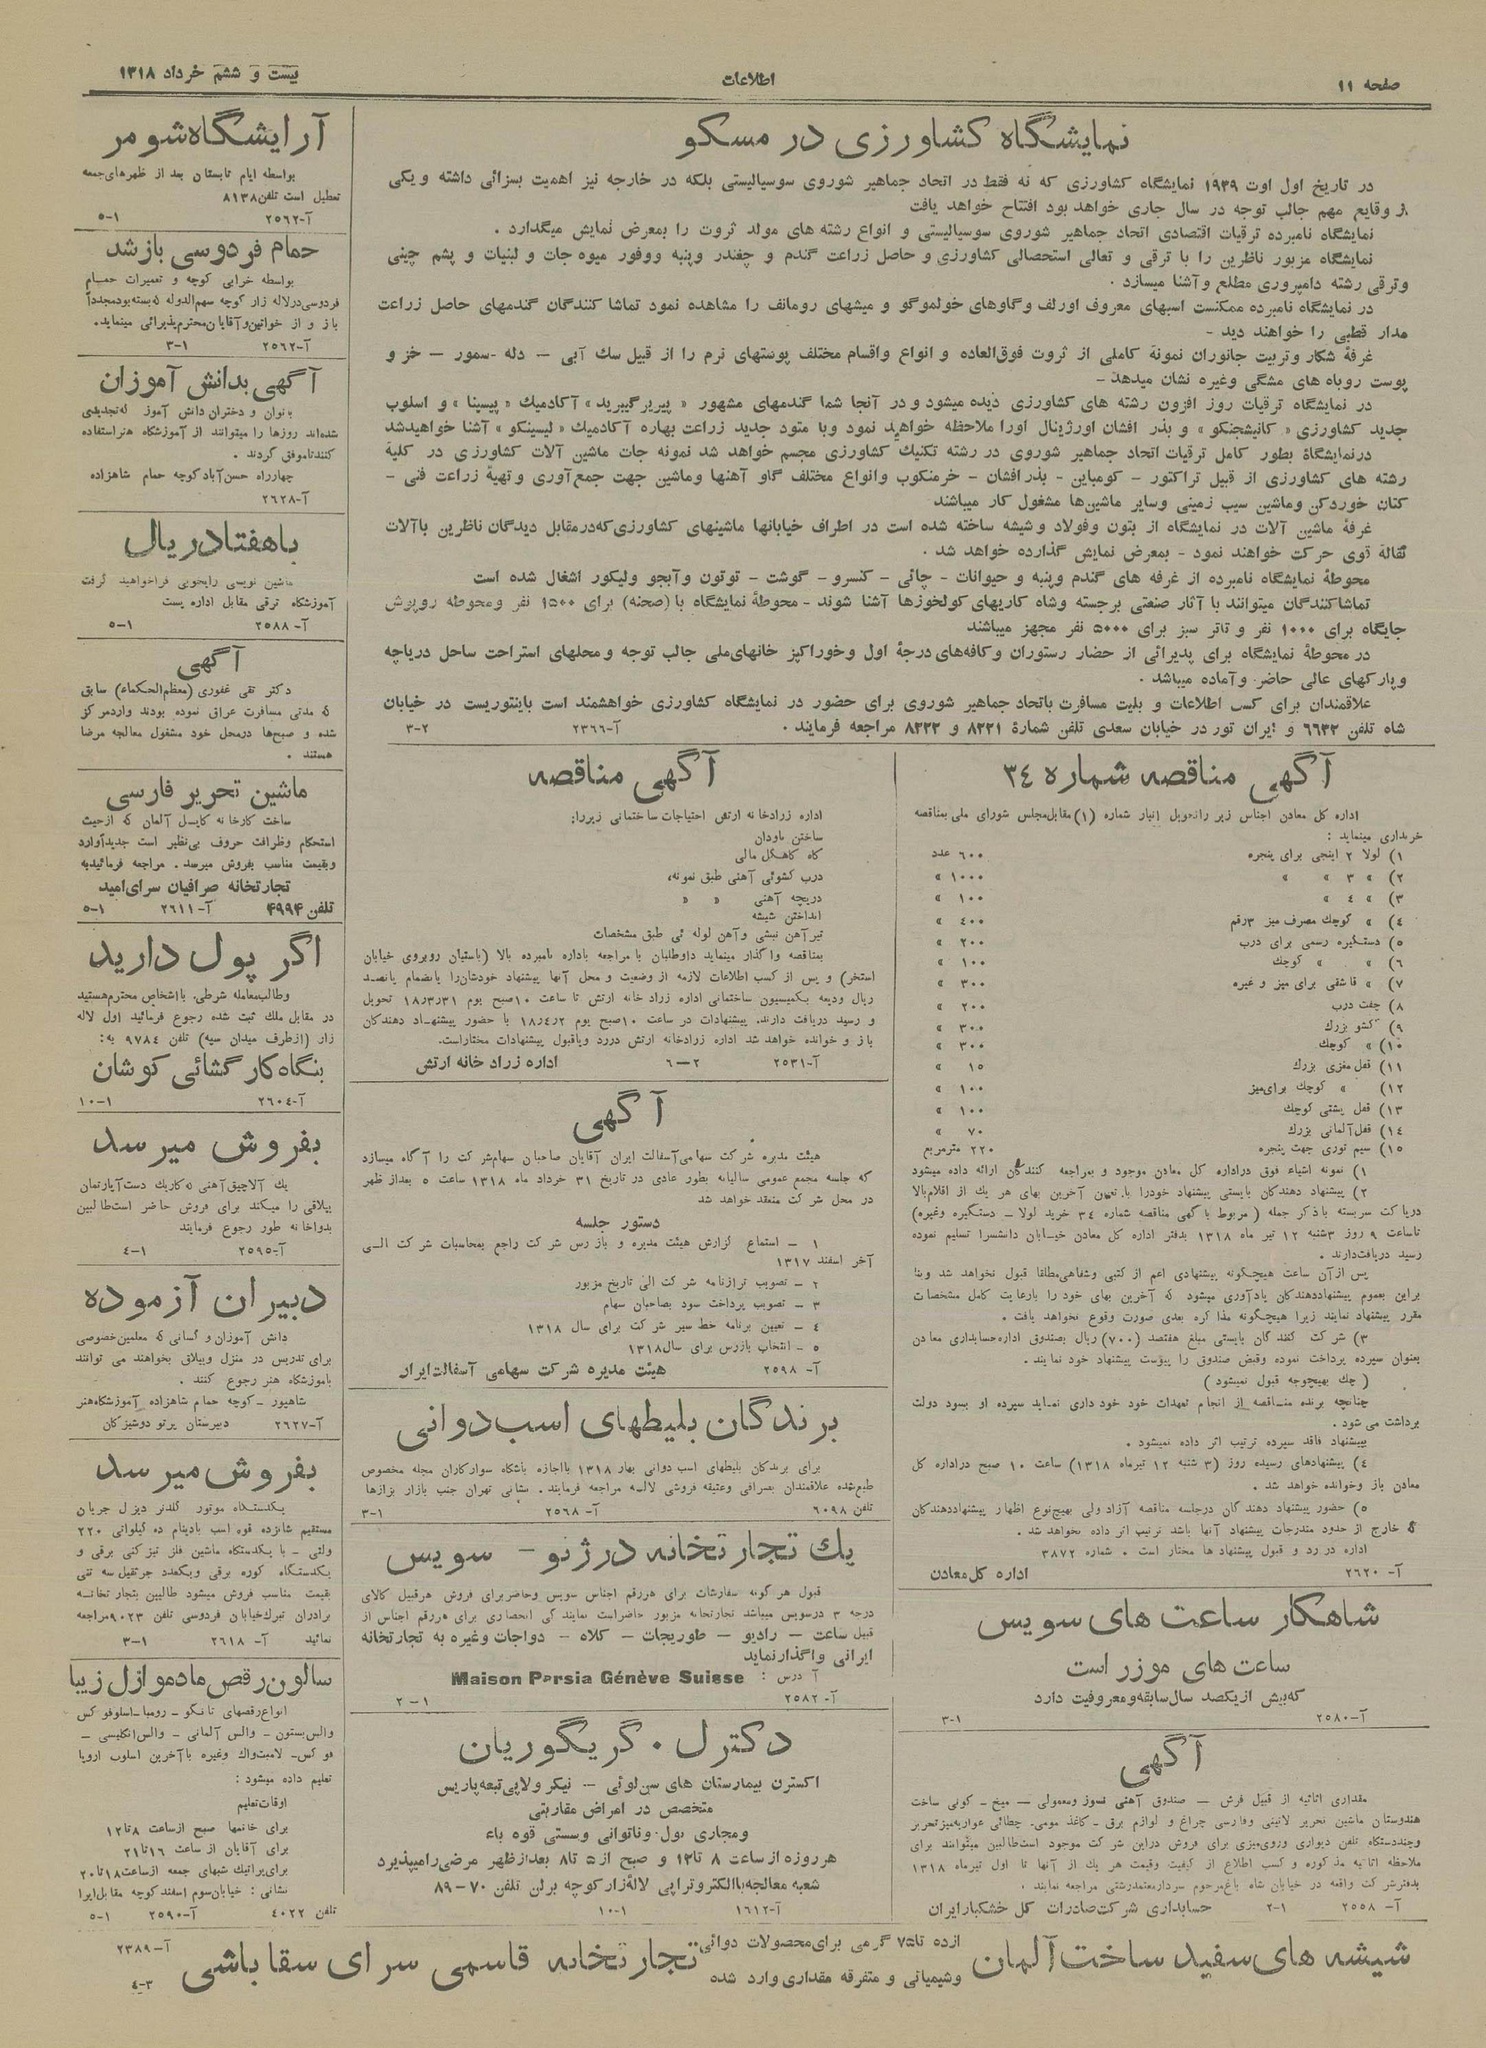 صفحه ۱۱
اطلاعات
بیست و ششم خرداد ۱۳۱۸
نمایشگاه کشاورزی در مسکو
در تاریخ اول اوت ۱۹۳۹ نمایشگاه کشاورزی که نه فقط در اتحاد جماهیر شوروی سوسیالیستی بلکه در خارجه نیز اهمیت بسزائی داشته و یکی
از وقایع مهم جالب توجه در سال جاری خواهد بود افتتاح خواهد یافت
نمایشگاه نامبرده ترقیات اقتصادی اتحاد جماهیر شوروی سوسیالیستی و انواع رشته های مولد ثروت را بمعرض نمایش میگذارد .
نمایشگاه مزبور ناظرین را با ترقی و تعالی استحصالی کشاورزی و حاصل زراعت گندم و چغندر وپنبه ووفور میوه جات و لبنیات و پشم چینی
وترقی رشته دامپروری مطلع و آشنا میسازد .
در نمایشگاه نامبرده ممکنست اسبهای معروف اورلف وگاوهای خولموگو و میشهای رومانف را مشاهده نمود تماشا کنندگان گندمهای حاصل زراعت
مدار قطبی را خواهند دید -
غرفۀ شکار وتربیت جانوران نمونۀ کاملی از ثروت فوق‌العاده و انواع واقسام مختلف پوستهای نرم را از قبیل سك آبی — دله -سمور — خز و
پوست روباه های مشگی وغیره نشان میدهد -
در نمایشگاه ترقیات روز افزون رشته های کشاورزی دیده میشود و در آنجا شما گندمهای مشهور « پیریر‌گیبرید » آکادمیك « پیسینا » و اسلوب
جدید کشاورزی « کانیشجنکو » و بذر افشان اورژینال اورا ملاحظه خواهید نمود وبا متود جدید زراعت بهاره آکادمیك « لیسینکو » آشنا خواهیدشد
درنمایشگاه بطور کامل ترقیات اتحاد جماهیر شوروی در رشته تکنیك کشاورزی مجسم خواهد شد نمونه جات ماشین آلات کشاورزی در کلیۀ
رشته های کشاورزی از قبیل تراکتور — کومباین - بذرافشان - خرمنکوب وانواع مختلف گاو آهنها وماشین جهت جمع‌آوری و تهیۀ زراعت فنی -
کتان خوردکن وماشین سیب زمینی وسایر ماشین‌ها مشغول کار میباشند
غرفۀ ماشین آلات در نمایشگاه از بتون وفولاد و شیشه ساخته شده است در اطراف خیابانها ماشینهای کشاورزی که‌درمقابل دیدگان ناظرین باآلات
نقالۀ قوی حرکت خواهند نمود - بمعرض نمایش گذارده خواهد شد .
محوطۀ نمایشگاه نامبرده از غرفه های گندم وپنبه و حیوانات - چائی - کنسرو - گوشت - توتون و آبجو ولیکور اشغال شده است
تماشاکنندگان میتوانند با آثار صنعتی برجسته وشاه کاریهای کولخوزها آشنا شوند - محوطۀ نمایشگاه با (صحنه) برای ۱۵۰۰ نفر ومحوطه روپوش
جایگاه برای ۱۰۰۰ نفر و تاتر سبز برای ۵۰۰۰ نفر مجهز میباشند
در محوطۀ نمایشگاه برای پذیرائی از حضار رستوران وکافه‌های درجۀ اول وخوراکپز خانهای‌ملی جالب توجه و محلهای استراحت ساحل دریاچه
وپارکهای عالی حاضر وآماده میباشد .
علاقمندان برای کسب اطلاعات و بلیت مسافرت باتحاد جماهیر شوروی برای حضور در نمایشگاه کشاورزی خواهشمند است باینتوریست در خیابان
شاه تلفن ۶۶۳۲ و ایران تور در خیابان سعدی تلفن شمارۀ ۸۲۲۱ و ۸۲۲۲ مراجعه فرمایند . آ-۲۳۶۶ ۲-۳
آگهی مناقصه شماره ۳٤
اداره کل معادن اجناس زیر راتحویل انبار شماره (۱) مقابل‌مجلس شورای ملی بمناقصه
خریداری مینماید :
۱) لولا ۲ اینجی برای پنجره ۶۰۰ عدد
۲) » ۳ » » ۱۰۰۰ »
۳) » ٤ » ۱۰۰ »
٤) » کوچك مصرف میز ۳رقم ٤۰۰ »
۵) دستگیره رسمی برای درب ۲۰۰ »
۶) » » کوچك ۱۰۰ »
۷) » قاشقی برای میز و غیره ۳۰۰ »
۸) جفت درب ۲۰۰ »
۹) کشو بزرك ۳۰۰ »
۱۰) » کوچك ۳۰۰ »
۱۱) قفل مغزی بزرك ۱۵ »
۱۲) » کوچك برای‌میز ۱۰۰ »
۱۳) قفل پشتی کوچك ۱۰۰ »
۱٤) قفل‌آلمانی بزرك ۷۰ »
۱۵) سیم توری جهت پنجره ۲۲۰ مترمربع
۱) نمونه اشیاء فوق دراداره کل معادن موجود و بمراجعه کنندگان ارائه داده میشود
۲) پیشنهاد دهندگان بایستی پیشنهاد خودرا با تعیین آخرین بهای هر یك از اقلام‌بالا
درپاکت سربسته باذکر جمله ( مربوط با گهی مناقصه شماره ۳٤ خرید لولا - دستگیره وغیره)
تاساعت ۹ روز ۳شنبه ۱۲ تیر ماه ۱۳۱۸ بدفتر اداره کل معادن خیابان دانشسرا تسلیم نموده
رسید دریافت‌دارند .
پس ازآن ساعت هیچگونه پیشنهادی اعم از کتبی وشفاهی‌مطلقا قبول نخواهد شد وبنا
براین بعموم پیشنهاددهندگان یادآوری میشود که آخرین بهای خود را بارعایت کامل مشخصات
مقرر پیشنهاد نمایند زیرا هیچگونه مذا کره بعدی صورت وقوع نخواهد یافت .
۳) شرکت کنندگان بایستی مبلغ هفتصد (۷۰۰) ریال بصندوق اداره‌حسابداری معادن
بعنوان سپرده پرداخت نموده وقبض صندوق را پیوست پیشنهاد خود نمایند .
( چك بهیچوجه قبول نمیشود )
چنانچه برنده مناقصه از انجام تعهدات خود خود داری نماید سپرده او بسود دولت
برداشت می شود .
پیشنهاد فاقد سپرده ترتیب اثر داده نمیشود .
٤) پیشنهادهای رسیده روز (۳ شنبه ۱۲ تیرماه ۱۳۱۸) ساعت ۱۰ صبح دراداره کل
معادن باز وخوانده خواهد شد .
۵) حضور پیشنهاد دهند گان درجلسه مناقصه آزاد ولی بهیچ‌نوع اظهار پیشنهاددهندگان
که خارج از حدود مندرجات پیشنهاد آنها باشد ترتیب اثر داده نخواهد شد .
اداره در رد و قبول پیشنهاد ها مختار است . شماره ۳۸۷۲
آ- ۲۶۲۰ اداره کل‌معادن
شاهکار ساعت های سویس
ساعت های موزر است
که‌بیش ازیکصد سال‌سابقه‌ومعروفیت دارد
آ-۲۵۸۰ ۱-۳
آگهی
مقداری اثاثیه از قبیل فرش — صندوق آهنی نسوز ومعمولی — میخ - گونی ساخت
هندوستان ماشین تحریر لاتینی وفارسی چراغ و لوازم برق - کاغذ مومی. چطائی عوارب‌میزتحریر
وچنددستگاه تلفن دیواری وروی‌میزی برای فروش دراین شرکت موجود است‌طالبین میتوانند برای
ملاحظه اثاثیه مذکوره و کسب اطلاع از کیفیت وقیمت هر یك از آنها تا اول تیرماه ۱۳۱۸
بدفترشرکت واقعه در خیابان شاه باغ‌مرحوم سردار‌معتمد‌رشتی مراجعه نمایند .
آ- ۲۵۵۸ ۱-۲ حسابداری شرکت‌صادرات کل خشکبارایران
آگهی مناقصه
اداره زرادخانه ارتش احتیاجات ساختمانی زیررا:
ساختن ناودان
کاه کاهگل مالی
درب کشوئی آهنی طبق نمونه،
دریچه آهنی » »
انداختن شیشه
تیرآهن نبشی وآهن لوله ئی طبق مشخصات
بمناقصه واگذار مینماید داوطلبان با مراجعه باداره نامبرده بالا (باستیان روبروی خیابان
استخر) و پس از کسب اطلاعات لازمه از وضعیت و محل آنها پیشنهاد خودشان‌را بانضمام پانصد
ریال ودیعه بکمیسیون ساختمانی اداره زراد خانه ارتش تا ساعت ۱۰صبح یوم ۱۸ر۳ر۳۱ تحویل
و رسید دریافت دارند. پیشنهادات در ساعت ۱۰صبح یوم ۱۸ر٤ر۲ با حضور پیشنهاد دهندگان
باز و خوانده خواهد شد اداره زرادخانه ارتش دررد ویاقبول پیشنهادات مختاراست.
آ-۲۵۳۱ ۲—۶ اداره زراد خانه ارتش
آگهی
هیئت مدیره شرکت سهامی‌آسفالت ایران آقایان صاحبان سهام‌شرکت را آگاه میسازد
که جلسه مجمع عمومی سالیانه بطور عادی در تاریخ ۳۱ خرداد ماه ۱۳۱۸ ساعت ۵ بعداز ظهر
در محل شرکت منعقد خواهد شد
دستور جلسه
۱ — استماع گزارش هیئت مدیره و بازرس شرکت راجع بمحاسبات شرکت الی
آخر اسفند ۱۳۱۷
۲ — تصویب ترازنامه شرکت الی تاریخ مزبور
۳ — تصویب پرداخت سود بصاحبان سهام
٤ — تعیین برنامه خط سیر شرکت برای سال ۱۳۱۸
۵ - انتخاب بازرس برای سال۱۳۱۸
آ- ۲۵۹۸ هیئت مدیره شرکت سهامی آسفالت‌ایران
برندگان بلیطهای اسب‌دوانی
برای برندگان بلیطهای اسب دوانی بهار ۱۳۱۸ بااجازه باشگاه سوارکاران مجله مخصوص
طبع‌شده علاقمندان بصرافی وعتیقه فروشی لاله مراجعه فرمایند. نشانی تهران جنب بازار بزازها
تلفن ۶۰۹۸ آ- ۲۵۶۸ ۱-۳
یك تجارتخانه درژنو - سویس
قبول هر گونه سفارشات برای هررقم اجناس سویس وحاضربرای فروش هرقبیل کالای
درجه ۳ درسویس میباشد تجارتخانه مزبور حاضراست نمایند گی انحصاری برای هررقم اجناس از
قبیل ساعت — رادیو — طوریجات — کلاه — دواجات وغیره به تجارتخانه
ایرانی واگذارنماید
آ درس : Maison Persia Généve Suisse
آ- ۲۵۸۲ ۱- ۲
دکتر ل . گریگوریان
اکسترن بیمارستان های سن‌لوئی — نیکر ولاپی‌تیه‌پاریس
متخصص در امراض مقاربتی
ومجاری بول. وناتوانی وسستی قوه باء
هرروزه ازساعت ۸ تا۱۲ و صبح از۵ تا۸ بعدازظهر مرضی‌رامیپذیرد
شعبه معالجه‌باالکتروتراپی لاله‌زارکوچه برلن تلفن ۷۰-۸۹
آ-۱۶۱۲ ۱-۱۰
آرایشگاه‌شومر
بواسطه ایام تابستان بعد از ظهرهای‌جمعه
تعطیل است تلفن۸۱۳۸
آ-۲۵۶۲ ۱-۵
حمام فردوسی بازشد
بواسطه خرابی کوچه و تعمیرات حمام
فردوسی‌درلاله زار کوچه سهم‌الدوله که‌بسته‌بودمجدداً
باز و از خواتین‌وآقایان‌محترم‌پذیرائی مینماید.
آ-۲۵۶۲ ۱-۳
آگهی بدانش آموزان
بانوان و دختران دانش آموز که‌تجدیدی
شده‌اند روزها را میتوانند از آموزشگاه هنراستفاده
کنندتاموفق گردند .
چهارراه حسن‌آباد کوچه حمام شاهزاده
آ-۲۶۲۸
باهفتادریال
ماشین نویسی رابخوبی فراخواهید گرفت
آموزشگاه ترقی مقابل اداره پست
آ- ۲۵۸۸ ۱-۵
آگهی
دکتر تقی غفوری (معظم‌الحکماء) سابق
که مدتی مسافرت عراق نموده بودند واردمرکز
شده و صبح‌ها درمحل خود مشغول معالجه مرضا
هستند .
ماشین تحریر فارسی
ساخت کارخانه کاپل آلمان که ازحیث
استحکام وظرافت حروف بی‌نظیر است جدیداًوارد
وبقیمت مناسب بفروش میرسد . مراجعه فرمائیدبه
تجارتخانه صرافیان سرای‌امید
تلفن ۴۹۹۴ آ-۲۶۱۱ ۱-۵
اگر پول دارید
وطالب‌معامله شرطی. بااشخاص محترم‌هستید
در مقابل ملك ثبت شده رجوع فرمائید اول لاله
زار (ازطرف میدان سپه) تلفن ۹۷۸٤ به:
بنگاه‌کارگشائی کوشان
آ-۲۶۰٤ ۱-۱۰
بفروش میرسد
یك آلاچیق‌آهنی که‌کاریك دست‌آپارتمان
ییلاقی را میکند برای فروش حاضر است‌طالبین
بدواخانه طور رجوع فرمایند
آ-۲۵۹۵ ۱-٤
دبیران آزموده
دانش آموزان و کسانی که معلمین‌خصوصی
برای تدریس در منزل وییلاق بخواهند می توانند
باموزشگاه هنر رجوع کنند .
شاهپور - کوچه حمام شاهزاده آموزشگاه‌هنر
آ-۲۶۲۷ دبیرستان پرتو دوشیزگان
بفروش‌میرسد
یکدستگاه موتور گلدنر دیزل جریان
مستقیم شانزده قوه اسب بادینام ده کیلواتی ۲۲۰
ولتی - با یکدستگاه ماشین فلز تیز کنی برقی و
یکدستگاه کوره برقی ویکعدد جرثقیل سه تنی
بقیمت مناسب فروش میشود طالبین بتجارتخانه
برادران تبرك‌خیابان فردوسی تلفن ۹۰۲۳مراجعه
نمائید آ- ۲۶۱۸ ۱-۳
سالون‌رقص‌مادموازل زیبا
انواع‌رقصهای تانگو - رومبا-اسلوفو کس
والس‌بستون - والس آلمانی - والس‌انگلیسی -
فو کس- لامبت‌واك وغیره باآخرین اسلوب اروپا
تعلیم داده میشود :
اوقات‌تعلیم
برای خانمها صبح ازساعت ۸تا۱۲
برای آقایان از ساعت ۱۶تا۲۱
برای‌پراتیك شبهای جمعه ازساعت۱۸تا۲۰
نشانی : خیابان‌سوم اسفند کوچه مقابل‌اپرا
تلفن ٤۰۲۲ آ-۲۵۹۰ ۱-۵
شیشه های سفید ساخت آلمان
ازده تا۷۵ گرمی برای‌محصولات دوائی
وشیمیائی و متفرقه مقداری وارد شده
تجارتخانه قاسمی سرای سقا باشی
آ-۲۳۸۹
۳-٤